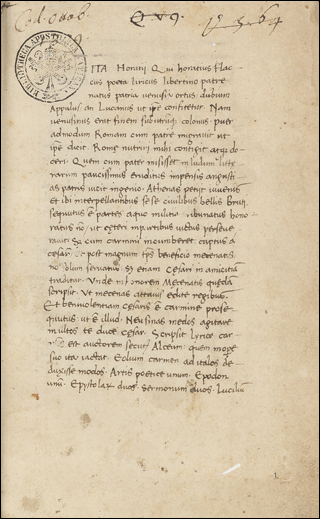 Cod. Ottob.
Q V 9.
1364
BIBLIOTHECA APOSTOLICA VATICANA
ITA Horatij. Q. in horatius flac
cus poeta liricus libertino patre
natus patria venusij ortus, dubium
Appulus an Lucanus ut ipse confitetur. Nam
venusinus erat finem sub utrumque colonus. puer
admodum Romam cum patre migravit ut
ipse dicit. Romę nutriri mihi contigit atque do
ceri. Quem cum pater misisset in ludum litte
rarum paucissimis eruditus impensis angusti
as patris vicit ingenio. Athenas petijt iuvenis
et ibi interpellantibus se civilibus bellis Bruti
sequutus est partes aquo militia tribunatus hono
ratus
Sed cum carmini incumberet captus a
cęsare post magnum tempus beneficio mecenatis
non solum servatus. Sed etiam Cęsari in amicitiam
traditur. Unde in honorem Mecenatis quędam
scripsit. Ut mecenas attavis edite regibus.
Et benivolentiam Cęsaris est carmine prose
quutus. ut est illud. Neu sinas medos equitare
inultos te duce cęsar. Scripsit lyrico car
mine auctorem secutus Alceum. quem more
suo ita iactat. Eolium carmen ad italos de
duxisse modos. Artis poetice unum. Epodon
unum. Epystolarum duos. Sermonum duos. Lucilium